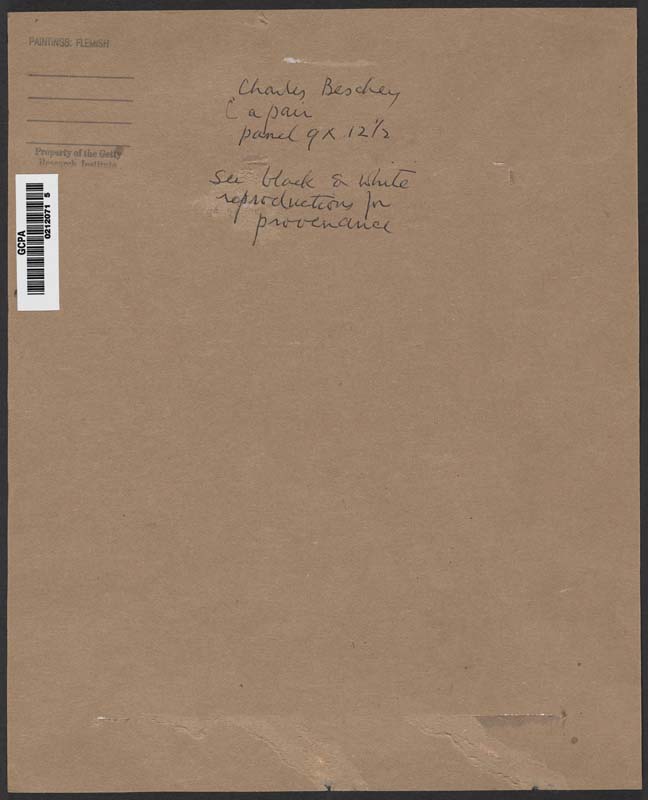 PAINTINGS: FLEMISH
Property of the Getty
Research Institute
GCPA
0212071 5
Charles Beschey
a pair
panel 9 x 12 1/2
see black & white
reproductions for
provenance